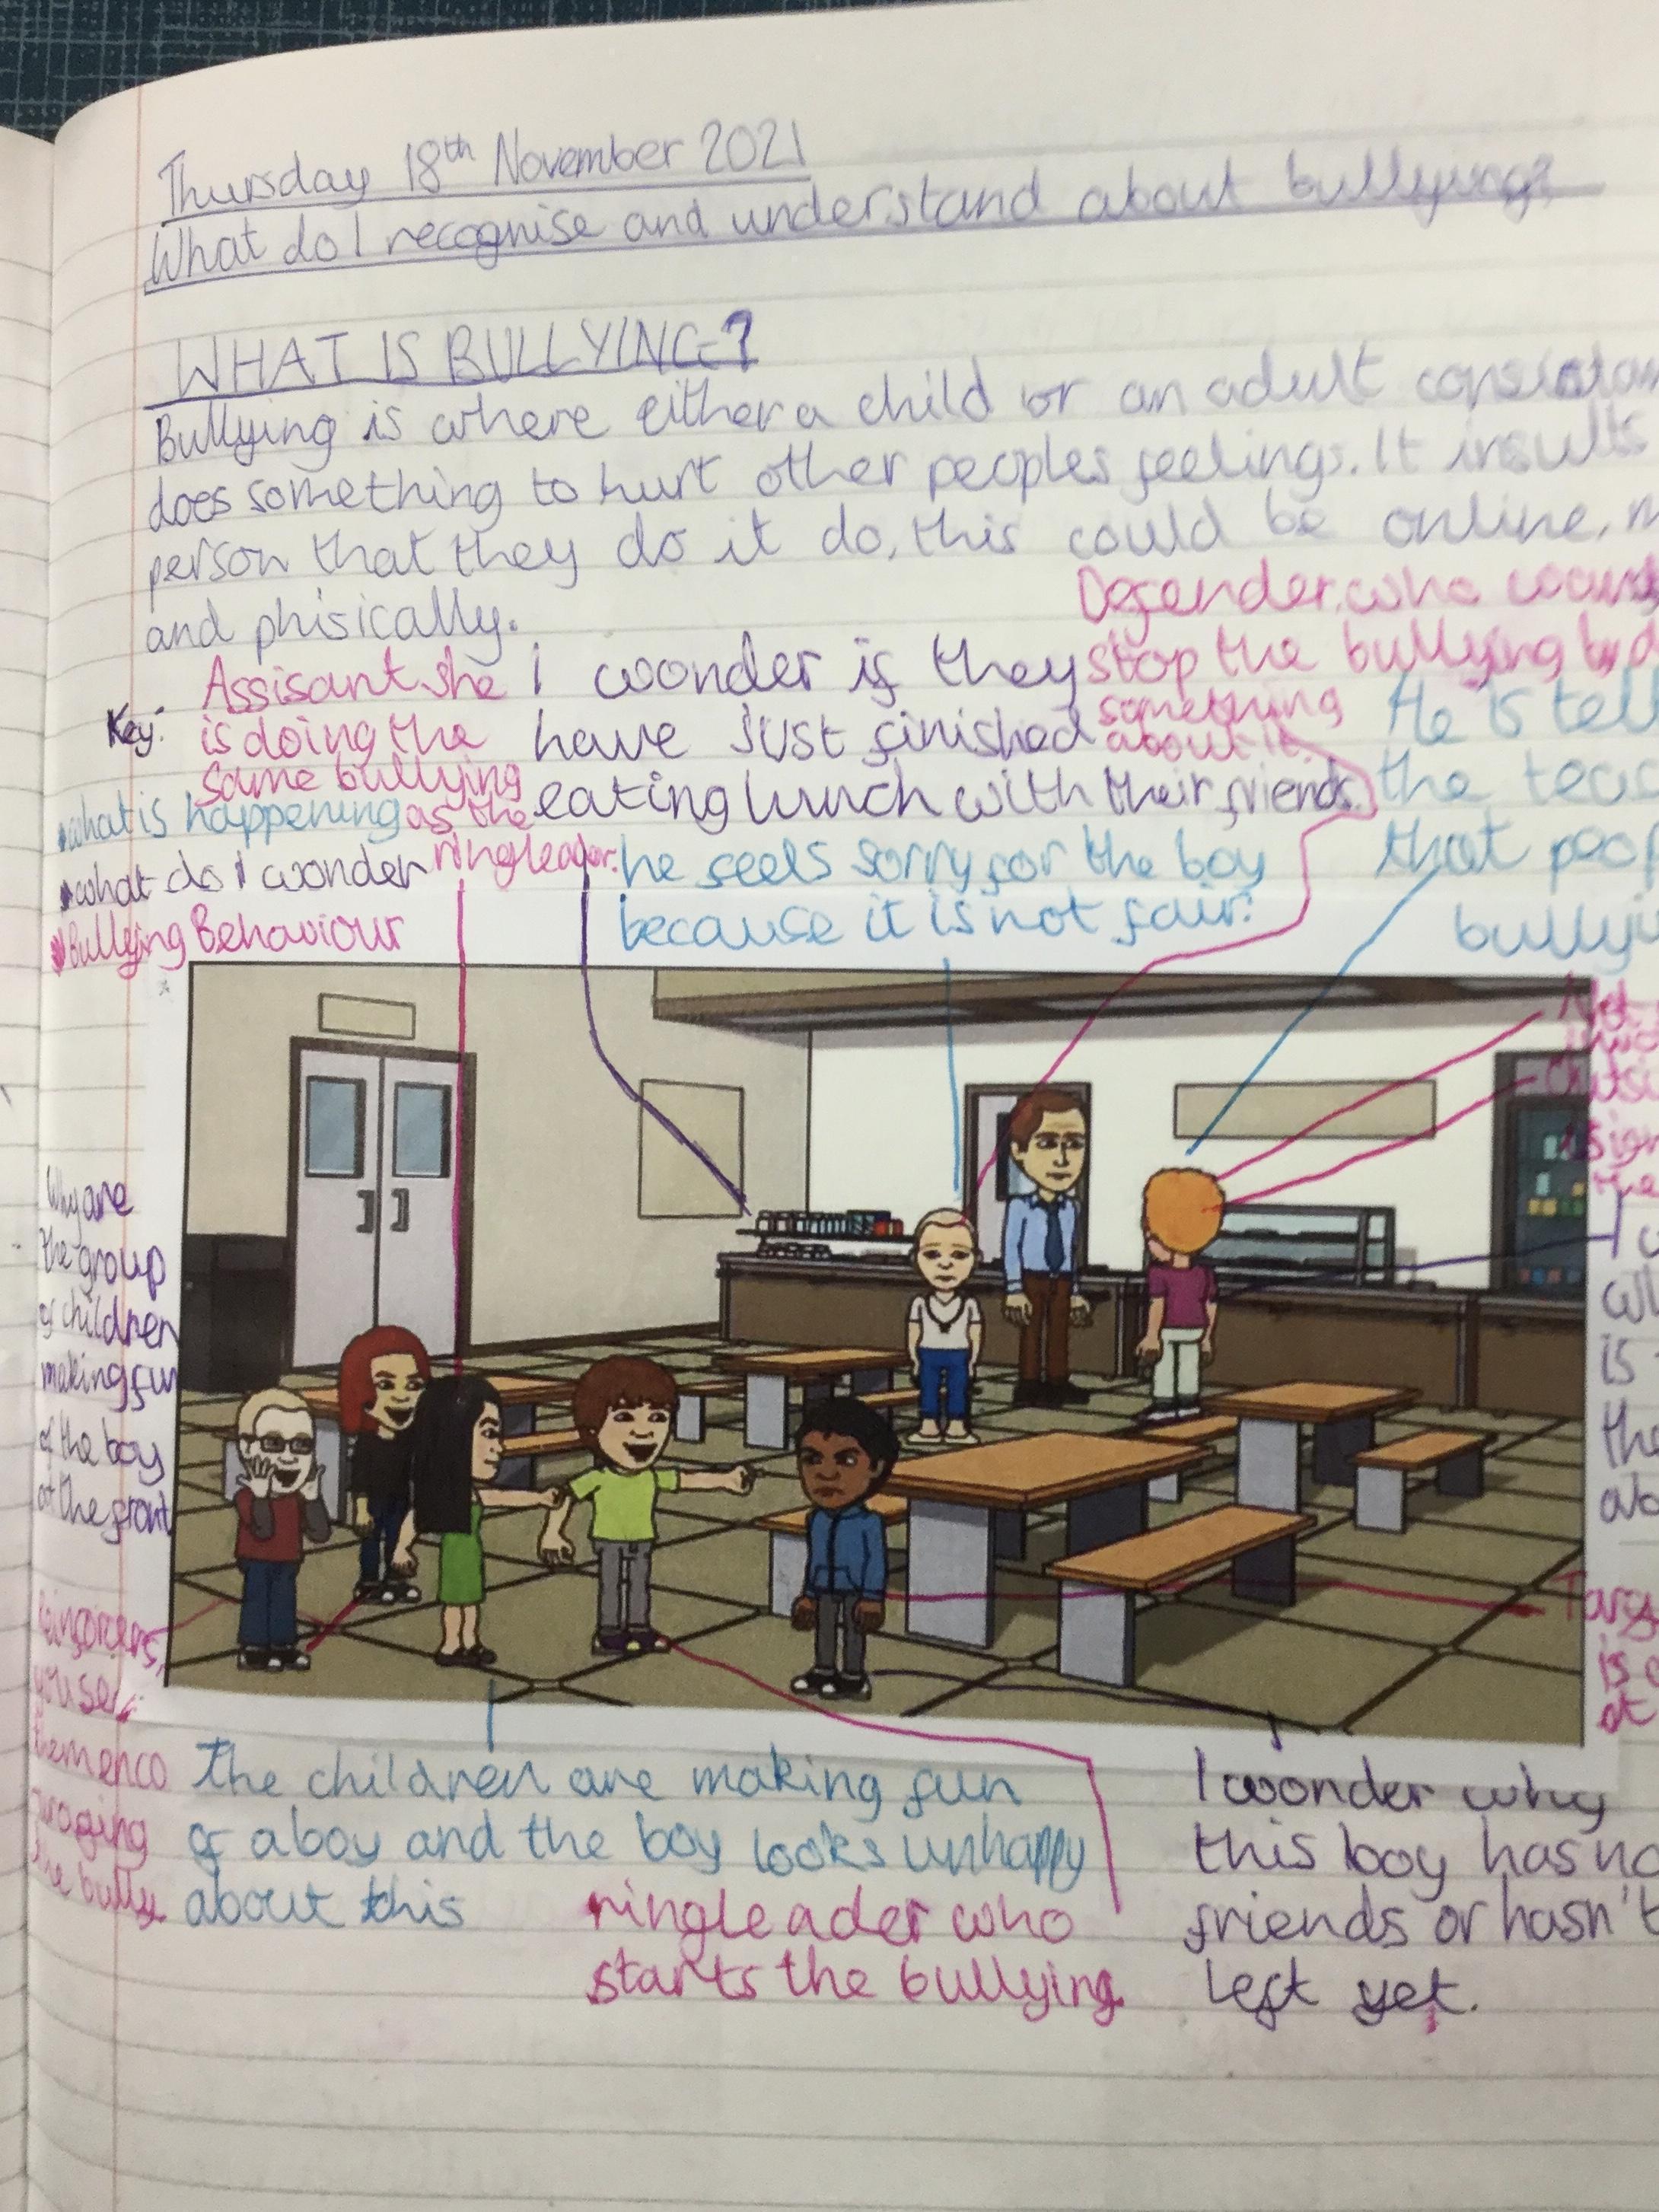 Thursday 18th November 2021
What do I recognise and understand about bullying?
WHAT IS BULLYING?
Bullying is where either a child or an adult
does something to hurt other peoples feelings. It insults
person that they do it do, this could be online,
and phisically.
Key:
what is happening
what do I wonder
Bullying Behaviour
Assisant she
is doing the
same bullying
as the
ringleader.
I wonder if they
have just finished
eating lunch with their friends.
Defender, who
stop the bullying
something
about it.
He is
the
that
he feels sorry for the boy
because it is not fair.
Why are
the group
of children
making fun
of the boy
at the front
is
the
is
at
Reinforcers,
you see
them enco
uraging
the bully.
The children are making fun
of a boy and the boy looks unhappy
about this
ringleader who
starts the bullying.
I wonder why
this boy has no
friends or hasn't
left yet.